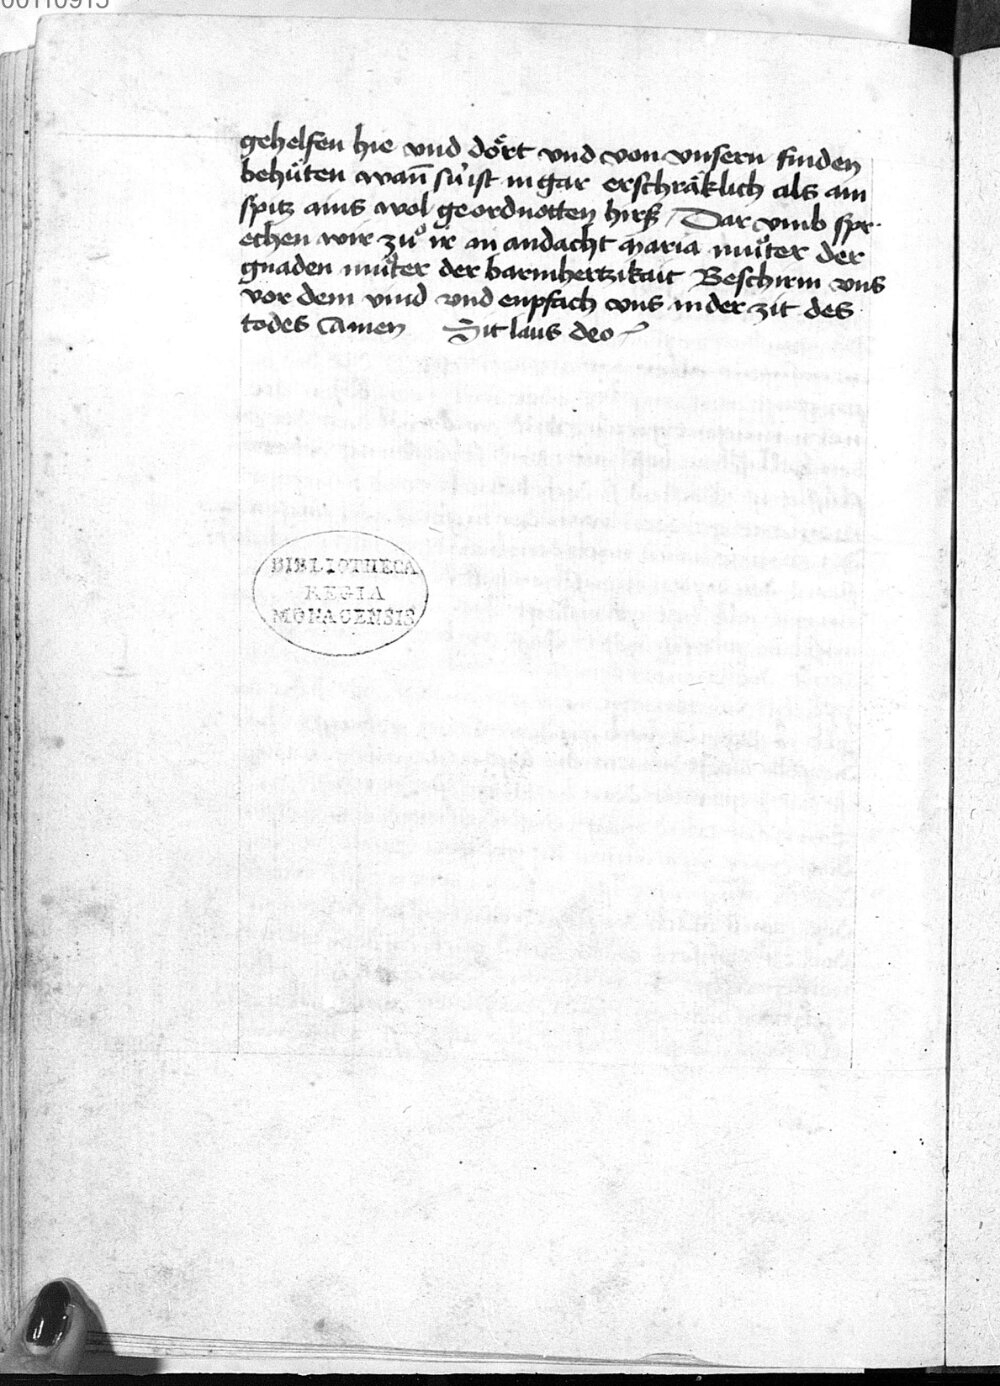 gehelfen hie vnd dört vnd von vnsern finden
behüten wann̄ sü ist in gar erschräklich als ain
spitz ains wol geordnotten hirß / Dar vmb spr-
echen wir zuͦ ir an andacht maria muͦter der
gnaden muͦter der barmhertzikait Beschirm vns
vor dem vind vnd enpfach vns in der zit des
todes Amen Sit laus deo
BIBLIOTHECA
REGIA
MONACENSIS